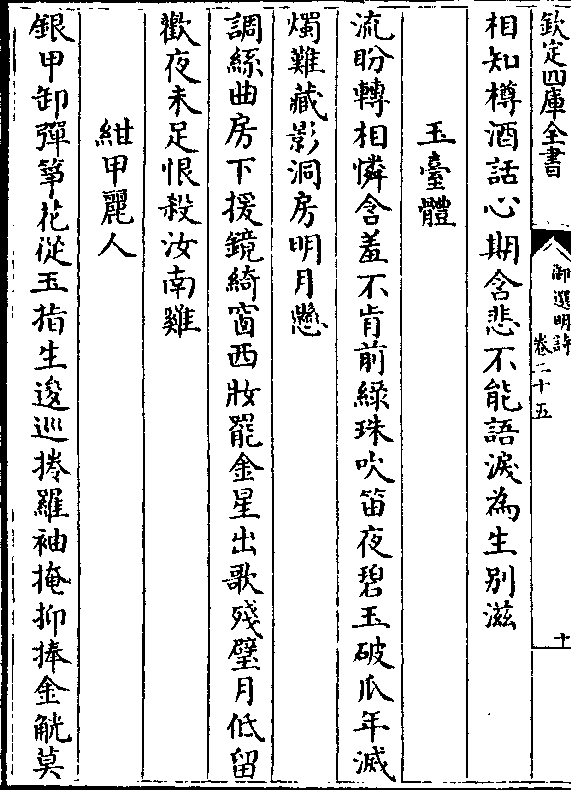 欽定四庫全書
御選明詩
卷二十五
十
相知樽酒話心期含悲不能語淚為生別滋
玉臺體
流盼轉相憐含羞不肯前綠珠吹笛夜碧玉破瓜年滅
燭難藏影洞房明月懸
調絲曲房下援鏡綺窗西妝罷金星出歌殘璧月低留
歡夜未足恨殺汝南雞
紺甲麗人
銀甲卸彈箏花從玉指生逡巡捲羅袖掩抑捧金觥莫